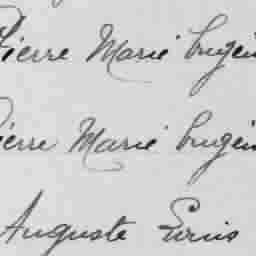 Pierre Marie Eugèn
Pierre Marie Eugèn
Auguste